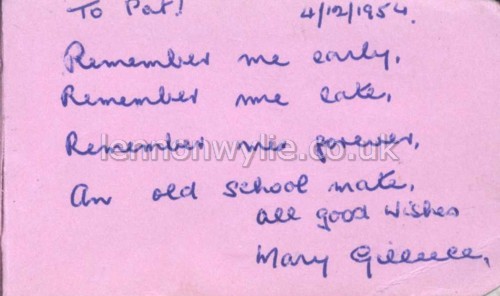 To Pat! 4/12/1954.
Remember me early,
Remember me late,
Remember me forever,
lennonwylie.co.uk
An old school mate,
all good wishes
Mary